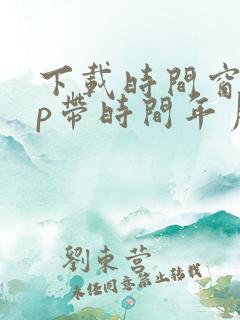 下載時間窗
p帶時間年月
劉東營
未經同意禁止转载